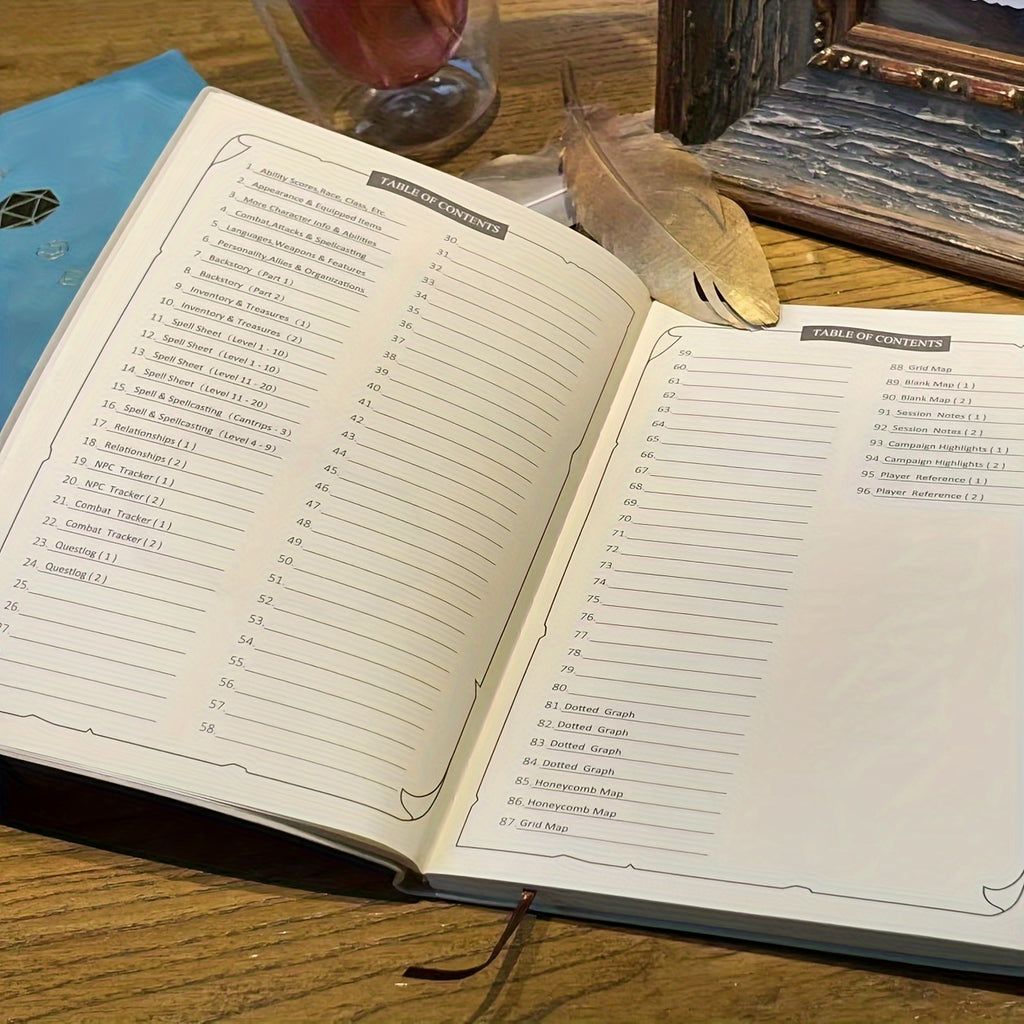 TABLE OF CONTENTS
1. Ability Scores,Race, Class, Etc.
2. Appearance & Equipped Items
3. More Character Info & Abilities
4. Combat,Attacks & Spellcasting
5. Languages,Weapons & Features
6. Personality,Allies & Organizations
7. Backstory (Part 1)
8. Backstory (Part 2)
9. Inventory & Treasures (1)
10. Inventory & Treasures (2)
11. Spell Sheet (Level 1 - 10)
12. Spell Sheet (Level 1 - 10)
13. Spell Sheet (Level 11 - 20)
14. Spell Sheet (Level 11 - 20)
15. Spell & Spellcasting (Cantrips - 3)
16. Spell & Spellcasting (Level 4 - 9)
17. Relationships ( 1 )
18. Relationships ( 2 )
19. NPC Tracker ( 1 )
20. NPC Tracker ( 2 )
21. Combat Tracker ( 1 )
22. Combat Tracker ( 2 )
23. Questlog ( 1 )
24. Questlog ( 2 )
25.
26.
27.
30.
31.
32.
33.
34.
35.
36.
37.
38.
39.
40.
41.
42.
43.
44.
45.
46.
47.
48.
49.
50.
51.
52.
53.
54.
55.
56.
57.
58.
TABLE OF CONTENTS
59.
60.
61.
62.
63.
64.
65.
66.
67.
68.
69.
70.
71.
72.
73.
74.
75.
76.
77.
78.
79.
80.
81. Dotted Graph
82. Dotted Graph
83. Dotted Graph
84. Dotted Graph
85. Honeycomb Map
86. Honeycomb Map
87. Grid Map
88. Grid Map
89. Blank Map ( 1 )
90. Blank Map ( 2 )
91. Session Notes ( 1 )
92. Session Notes ( 2 )
93. Campaign Highlights ( 1 )
94. Campaign Highlights ( 2 )
95. Player Reference ( 1 )
96. Player Reference ( 2 )